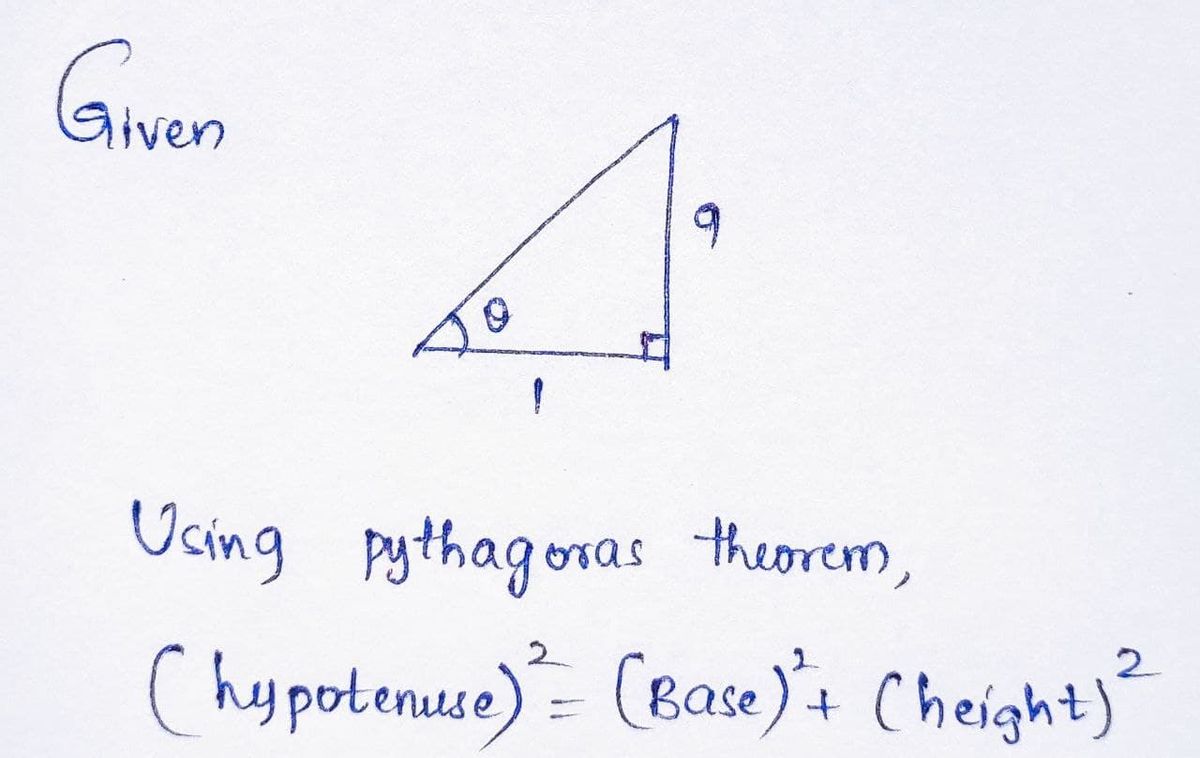 Given
9
θ
1
Using pythagoras theorem,
(hypotenuse)² = (Base)² + (height)²